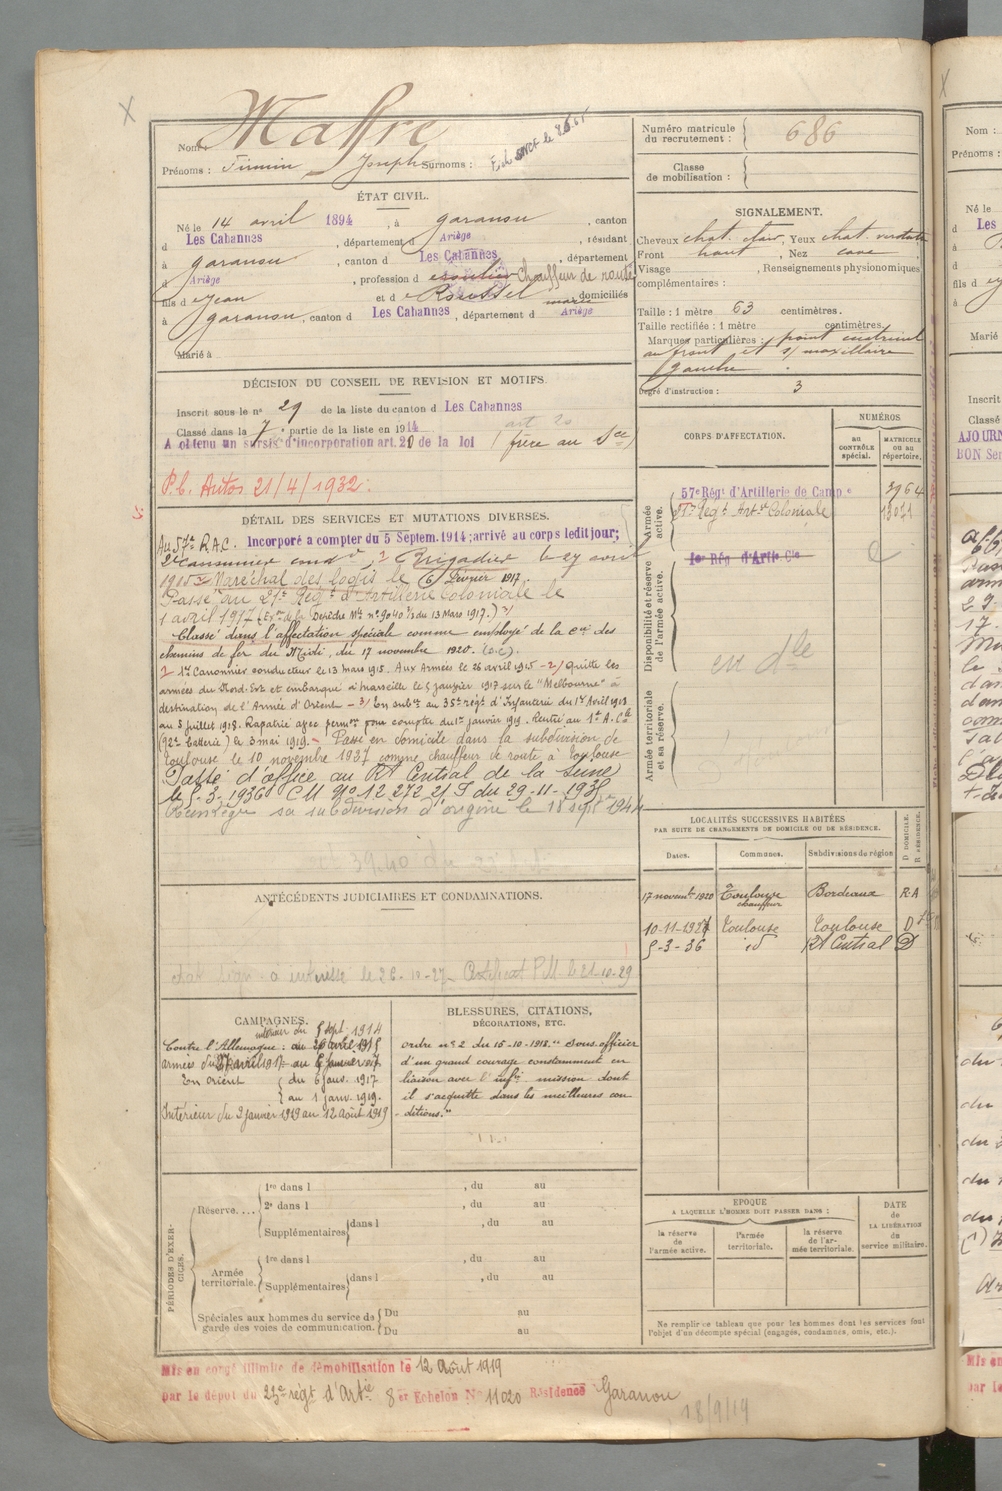 Nom : Maffre
Prénoms : Firmin Joseph Surnoms :
ÉTAT CIVIL.
Né le 14 avril 1894, à garanou, canton
d Les Cabannes, département d Ariège, résidant
à garanou, canton d Les Cabannes, département
d Ariège, profession d Chauffeur de route
fils d Jean et d Roussel domiciliés
à garanou, canton d Les Cabannes, département d Ariège
Marié à
DÉCISION DU CONSEIL DE REVISION ET MOTIFS.
Inscrit sous le n° 29 de la liste du canton d Les Cabannes
art 20
Classé dans la 7e partie de la liste en 1914
A obtenu un sursis d'incorporation art. 20 de la loi (frère au Sce)
P.C. Autos 21/4/1932.
DÉTAIL DES SERVICES ET MUTATIONS DIVERSES.
Au 57e R.A.C. Incorporé a compter du 5 Septem. 1914; arrivé au corps ledit jour;
2e Canonnier condr 1) Brigadier le 27 avril
1915 Maréchal des logis le 6 février 1917
Passé au 21e Régt d'Artillerie Coloniale le
1 avril 1917 (Dépêche Mle n° 9040 3/8 du 13 Mars 1917.) 3/
Classé dans l'affectation spéciale comme employé de la Cie des
chemins de fer du Midi, du 17 novembre 1920. (S.C).
1) 1er Canonnier conducteur le 13 mars 1915. Aux Armées le 26 avril 1915 - 2) Quitte les
armées du Nord-Est et embarqué à Marseille le 5 janvier 1917 sur le "Melbourne" à
destination de l'Armée d'Orient - 3/ En subce au 35e régt d'Infanterie du 1er Avril 1918
au 8 juillet 1918. Rapatrié avec permon pour compter du 1er janvier 1919. Rentré au 1er A. Cle
(92e batterie) le 3 mai 1919. - Passé en domicile dans la subdivision de
Toulouse le 10 novembre 1937 comme chauffeur de route à Toulouse
Passé d'office au RA Central de la Seine
le 5-3-1936 CM N° 12272 2/S du 29-11-1935
Réintègre sa subdivision d'origine le 18 septbre 1944
ANTÉCÉDENTS JUDICIAIRES ET CONDAMNATIONS.
à intéressé le 26-10-27 - Certificat P.M. le 21-10-29
CAMPAGNES.
intérieur du 5 sept. 1914
Contre l'Allemagne : au 26 avril 1915
armées du 27 avril 1915 au 5 janvier 1917
En orient { du 6 janv. 1917
{ au 1 janv. 1919.
Intérieur du 2 janvier 1919 au 12 Août 1919
BLESSURES, CITATIONS,
DÉCORATIONS, ETC.
ordre n° 2 du 15-10-1918. "Sous officier
d'un grand courage constamment en
liaison avec l'infie mission dont
il s'acquitte dans les meilleures con-
ditions."
PÉRIODES D'EXERCICES.
Réserve.... 1re dans l , du au
2e dans l , du au
Supplémentaires dans l , du au
Armée territoriale. 1re dans l , du au
Supplémentaires dans l , du au
Spéciales aux hommes du service de
garde des voies de communication. Du au
Du au
Mis en congé illimité de démobilisation le 12 Août 1919
par le dépôt du 23e régt d'Artie 8er Echelon N° 11020 Résidence Garanou
18/9/19
Numéro matricule
du recrutement : 686
Classe
de mobilisation :
SIGNALEMENT.
Cheveux chat. clair, Yeux chat. verdatre
Front haut, Nez cave,
Visage , Renseignements physionomiques
complémentaires :
Taille : 1 mètre 63 centimètres.
Taille rectifiée : 1 mètre centimètres.
Marques particulières : point cicatriciel
au front et s/ maxillaire
gauche.
Degré d'instruction : 3
CORPS D'AFFECTATION.
NUMÉROS
AU CONTRÔLE spécial.
MATRICULE OU AU répertoire.
Armée active.
57e Régt d'Artillerie de Campe 3964
21e Régt Artie Coloniale 13071
1er Rég d'Artie Cle
Disponibilité et réserve de l'armée active.
en dle
Armée territoriale et sa réserve.
LOCALITÉS SUCCESSIVES HABITÉES
PAR SUITE DE CHANGEMENTS DE DOMICILE OU DE RÉSIDENCE.
Dates. Communes. Subdivisions de région D DOMICILE. R RÉSIDENCE.
17 novembre 1920 Toulouse Bordeaux R.A
chauffeur
10-11-1927 Toulouse Toulouse D
5-3-36 id RA Central D
EPOQUE
A LAQUELLE L'HOMME DOIT PASSER DANS :
la réserve de l'armée active.
l'armée territoriale.
la réserve de l'armée territoriale.
DATE de LA LIBÉRATION du service militaire.
Ne remplir ce tableau que pour les hommes dont les services font
l'objet d'un décompte spécial (engagés, condamnés, omis, etc.).